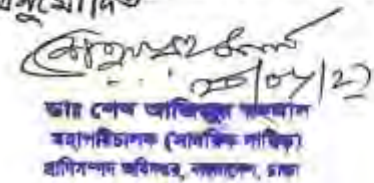 অনুমোদিত
ডাঃ শেখ আজিজুর রহমান
মহাপরিচালক (সাময়িক দায়িত্ব)
প্রাণিসম্পদ অধিদপ্তর, বাংলাদেশ, ঢাকা